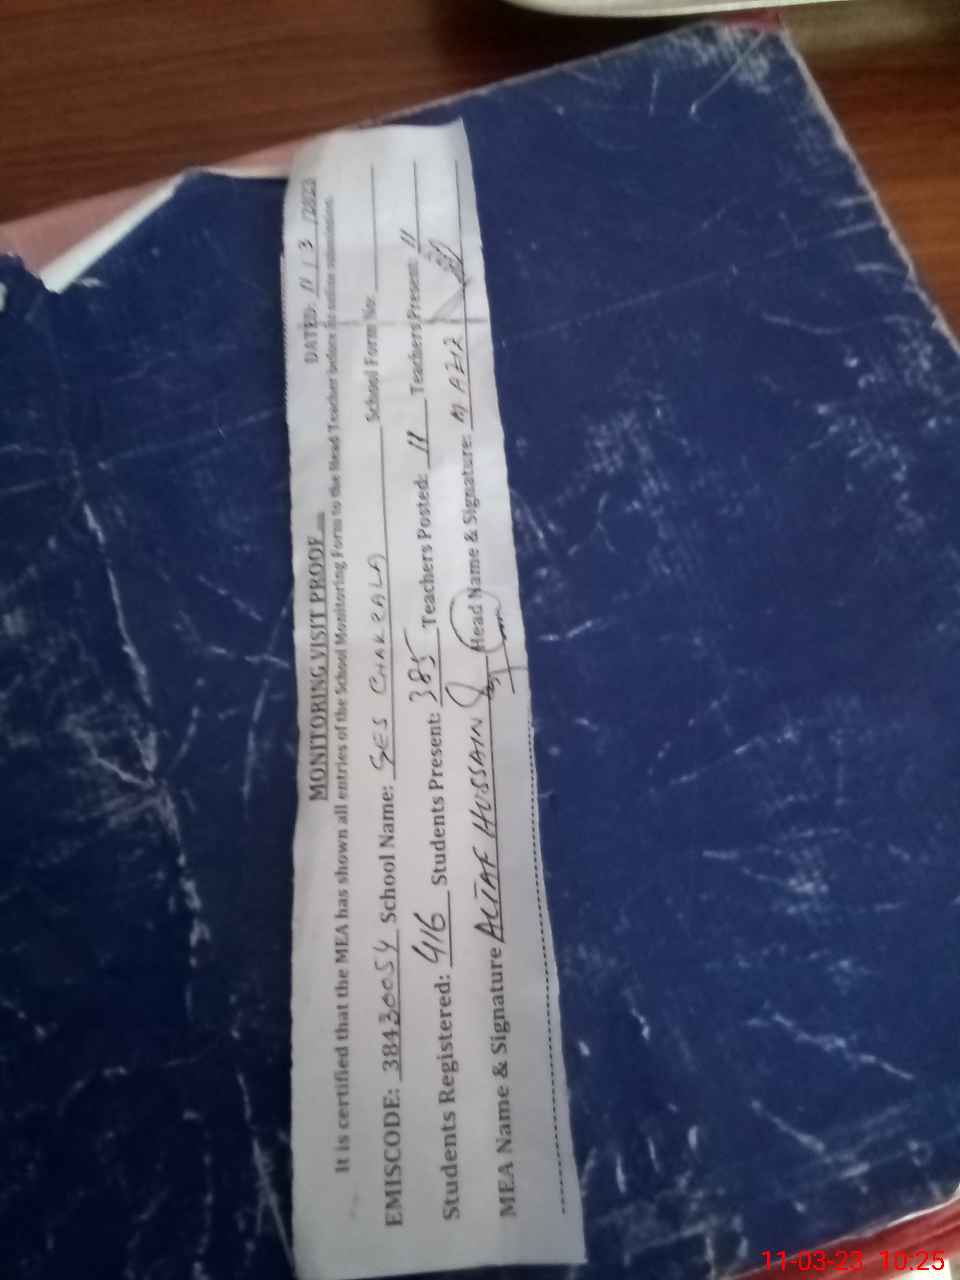 MONITORING VISIT PROOF
DATED: 11 / 3 /2023
It is certified that the MEA has shown all entries of the School Monitoring Form to the Head Teacher before its online submission.
EMISCODE: 38430054 School Name: GES CHAKRALA School Form No:
Students Registered: 416 Students Present: 385 Teachers Posted: 11 Teachers Present: 11
MEA Name & Signature ALTAF HUSSAIN Head Name & Signature: M AZIZ
11-03-23 10:25